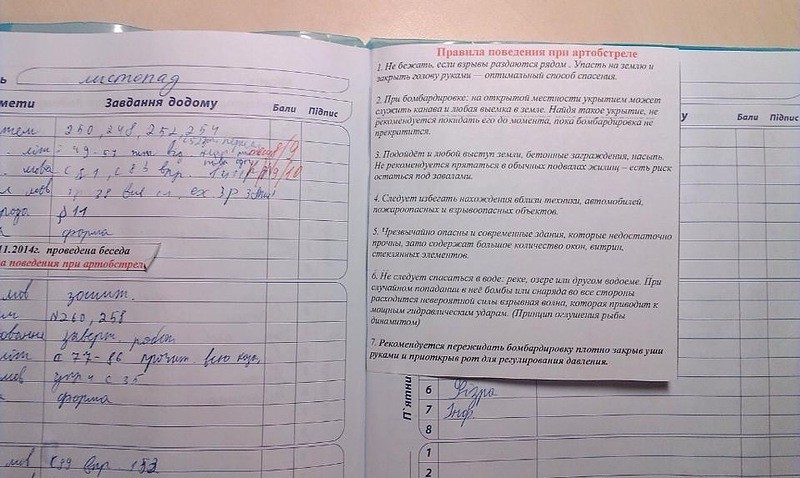 листопад
мети Завдання додому Бали Підпис
250, 248, 252, 254
8/9
9/10
р 11
форма
11.2014г. проведена беседа
а поведения при артобстрел
мов
№260, 258
заверт. робот
с 77-86 прочит. всю
мов с 35
форма
мов с 89 впр 152
Правила поведения при артобстреле
1. Не бежать, если взрывы раздаются рядом . Упасть на землю и
закрыть голову руками — оптимальный способ спасения.
2. При бомбардировке: на открытой местности укрытием может
служить канава и любая выемка в земле. Найдя такое укрытие, не
рекомендуется покидать его до момента, пока бомбардировка не
прекратится.
3. Подойдёт и любой выступ земли, бетонные заграждения, насыпь.
Не рекомендуется прятаться в обычных подвалах жилищ — есть риск
остаться под завалами.
4. Следует избегать нахождения вблизи техники, автомобилей,
пожароопасных и взрывоопасных объектов.
5. Чрезвычайно опасны и современные здания, которые недостаточно
прочны, зато содержат большое количество окон, витрин,
стеклянных элементов.
6. Не следует спасаться в воде: реке, озере или другом водоеме. При
случайном попадании в неё бомбы или снаряда во все стороны
расходится невероятной силы взрывная волна, которая приводит к
мощным гидравлическим ударам. (Принцип оглушения рыбы
динамитом)
7. Рекомендуется пережидать бомбардировку плотно закрыв уши
руками и приоткрыв рот для регулирования давления.
у Бали Підпис
П`ятни
6 Фізра
7 Інф.
8
1
2